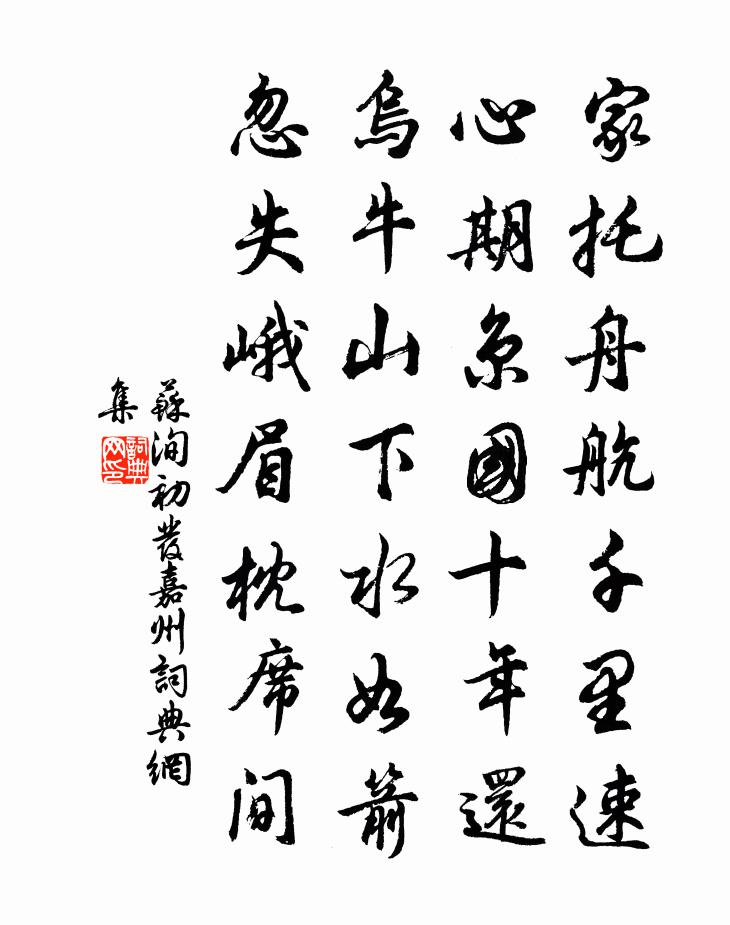 家托舟航千里速
心期京國十年還
烏牛山下水如箭
忽失峨眉枕席間
蘇洵初發嘉州詞典網
集
詞典網印